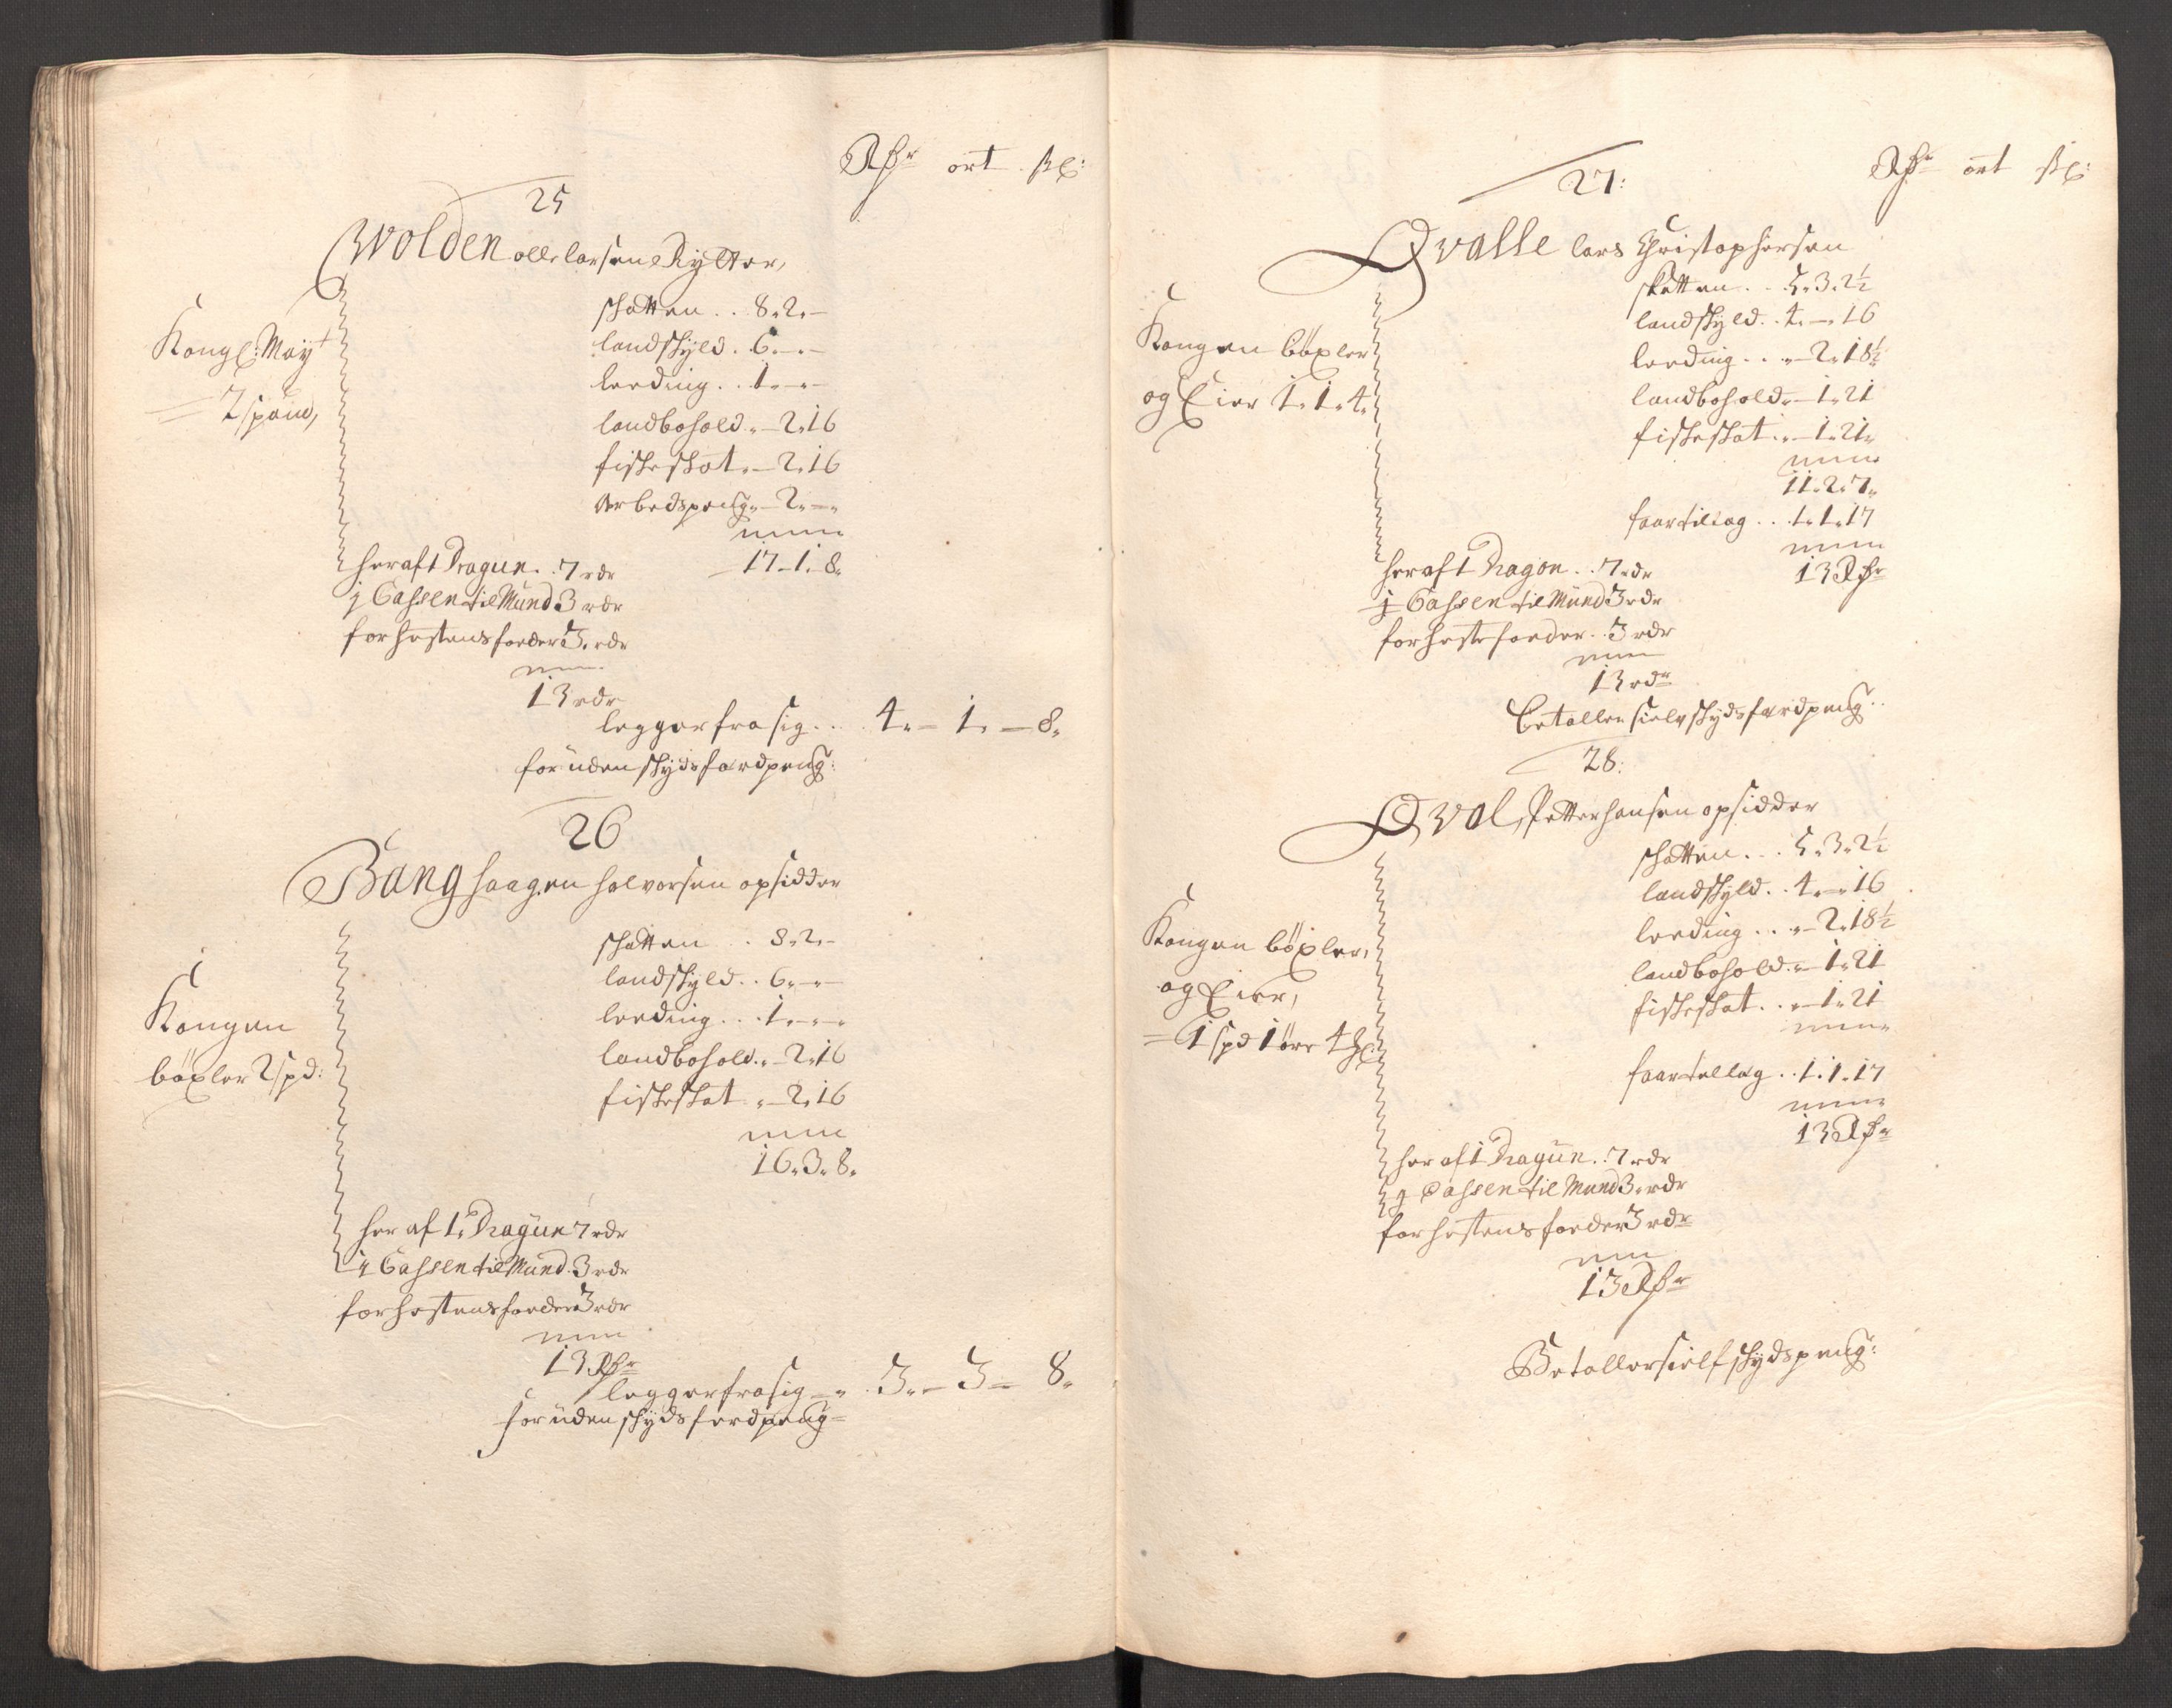 Rdr ort sk:
25
Wolden olle larsen Rytter,
Kongl: Mayt
2 spand,
skatten .. 8. 2. –
landskyld . 6. – . –
leeding .. 1. – . –
landbohold . – 2. 16
fiskeskat . – 2. 16
Arbedspeng . – 2. – .
17 – 1. 8.
her af 1 Dragun .. 7 rdr
j Cassen til Mund 3 rdr
for hestens foeder 3. rdr
13 rdr
legger fra sig ... 4. – 1. – 8.
foruden skydsferdpeng:
26
Bang haagen halvorsen opsidder
Kongen
böxler 2 spd:
skatten .. 8. 2. –
landskyld .. 6. – . –
leeding ... 1. – . –
landbohold . – 2. 16
fiskeskat . – 2. 16
16. 3. 8.
her af 1. Dragun 7 rdr
i Cassen til Mund . 3 rdr
for hestens foeder 3 rdr
13 Rdr
legger fra sig – . 3. – 3 – 8.
foruden skydsferdpeng =
Rdr ort sk:
27:
Qvalle lars Christophersen
Kongen böxler
og Eier 1. 1. 4.
skatten .. 5. 3. 2½
landskyld .. 4. – . 16
leeding ... – 2. 18½
landbohold . – 1. 21
fiskeskat . – 1. 21.
11. 2. 7.
faar tillag .. 1. 1. 17
13 Rdr
her af 1 Dragon .. 7 rdr
j Cassen til Mund 3 rdr
for heste foeder .. 3 rdr
13 rdr
betaller sielv skydsferdpeng ..
28:
Qval, Petter hansen opsidder
Kongen böxler,
og Eier,
= 1 spd 1 öre 4
skatten ... 5. 3. 2½
landskyld .. 4. – . 16
leeding ... – 2. 18½
landbohold . – 1. 21
fiskeskat .. – 1. 21
faar tellag .. 1. 1. 17
13 Rdr
her af 1 Dragun .. 7 rdr
j Cassen til Mund 3. rdr
for hestens foeder 3 rdr
13 Rdr
Betaller sielf skydspeng: